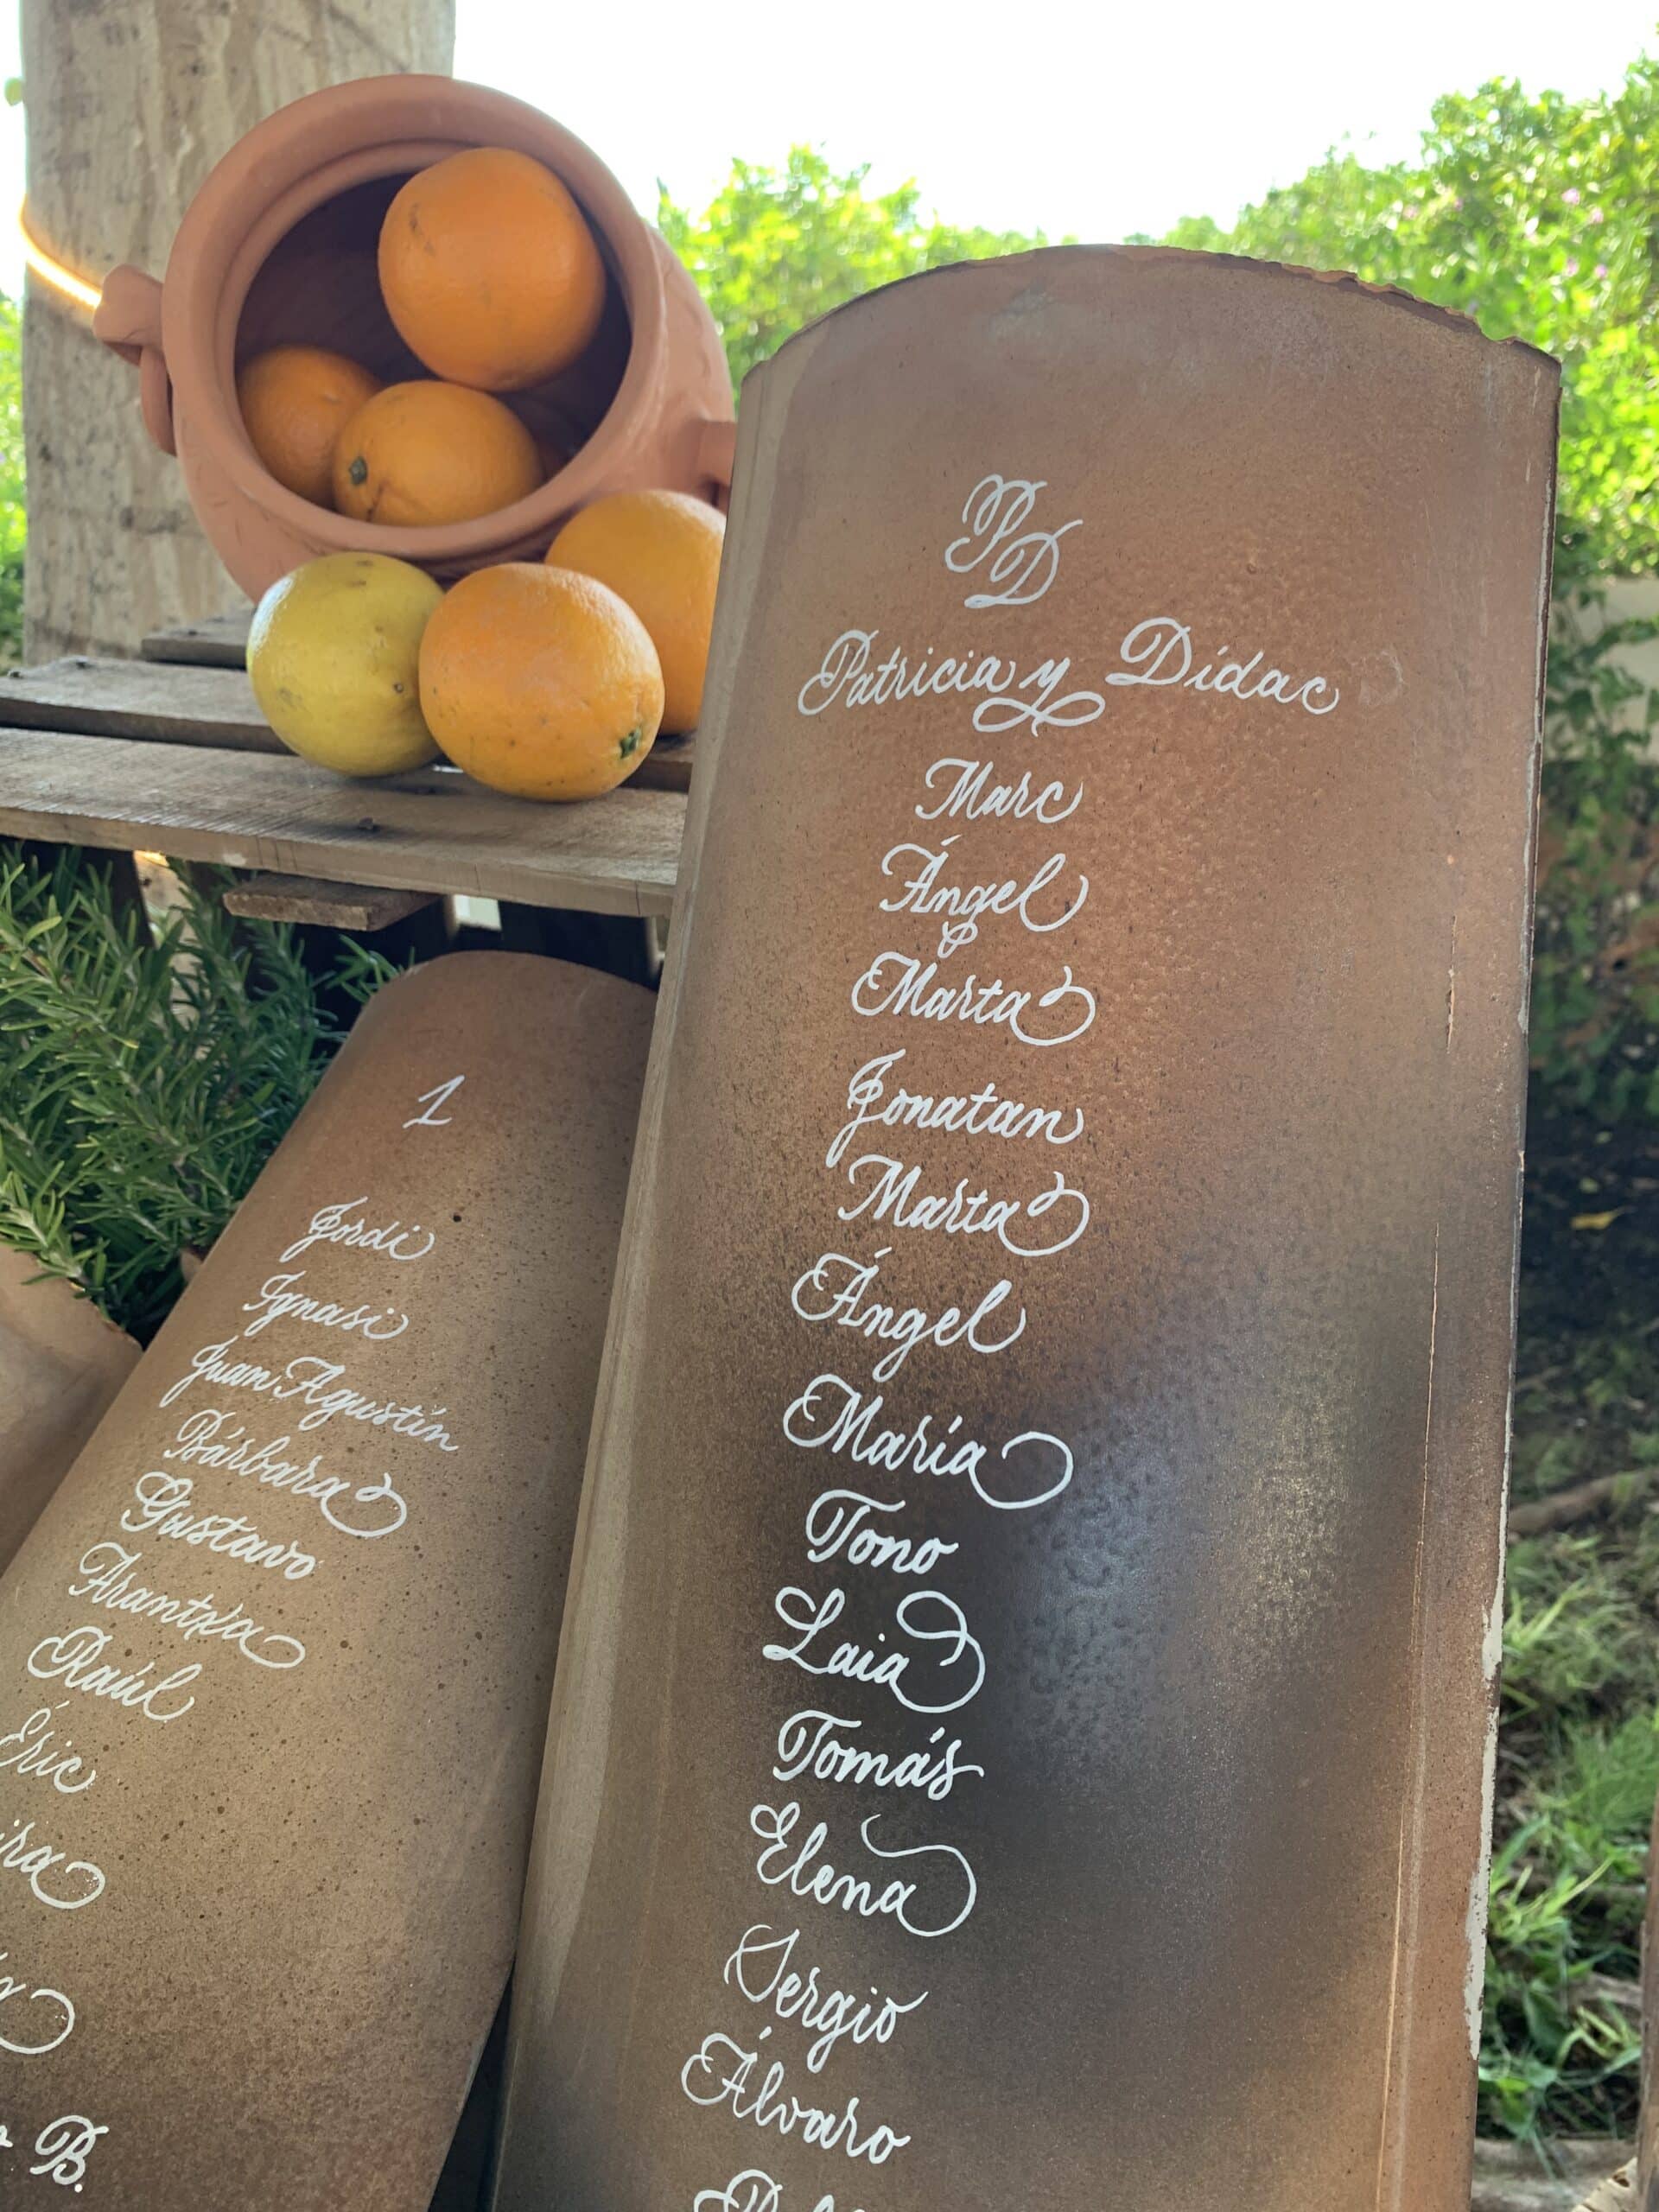 PD
Patricia y Dídac
Marc
Ángel
Marta
Jonatan
Marta
Ángel
María
Tono
Laia
Tomás
Elena
Sergio
Álvaro
1
Jordi
Ignasi
Juan Agustín
Bárbara
Gustavo
Arantxa
Raúl
Éric
B.